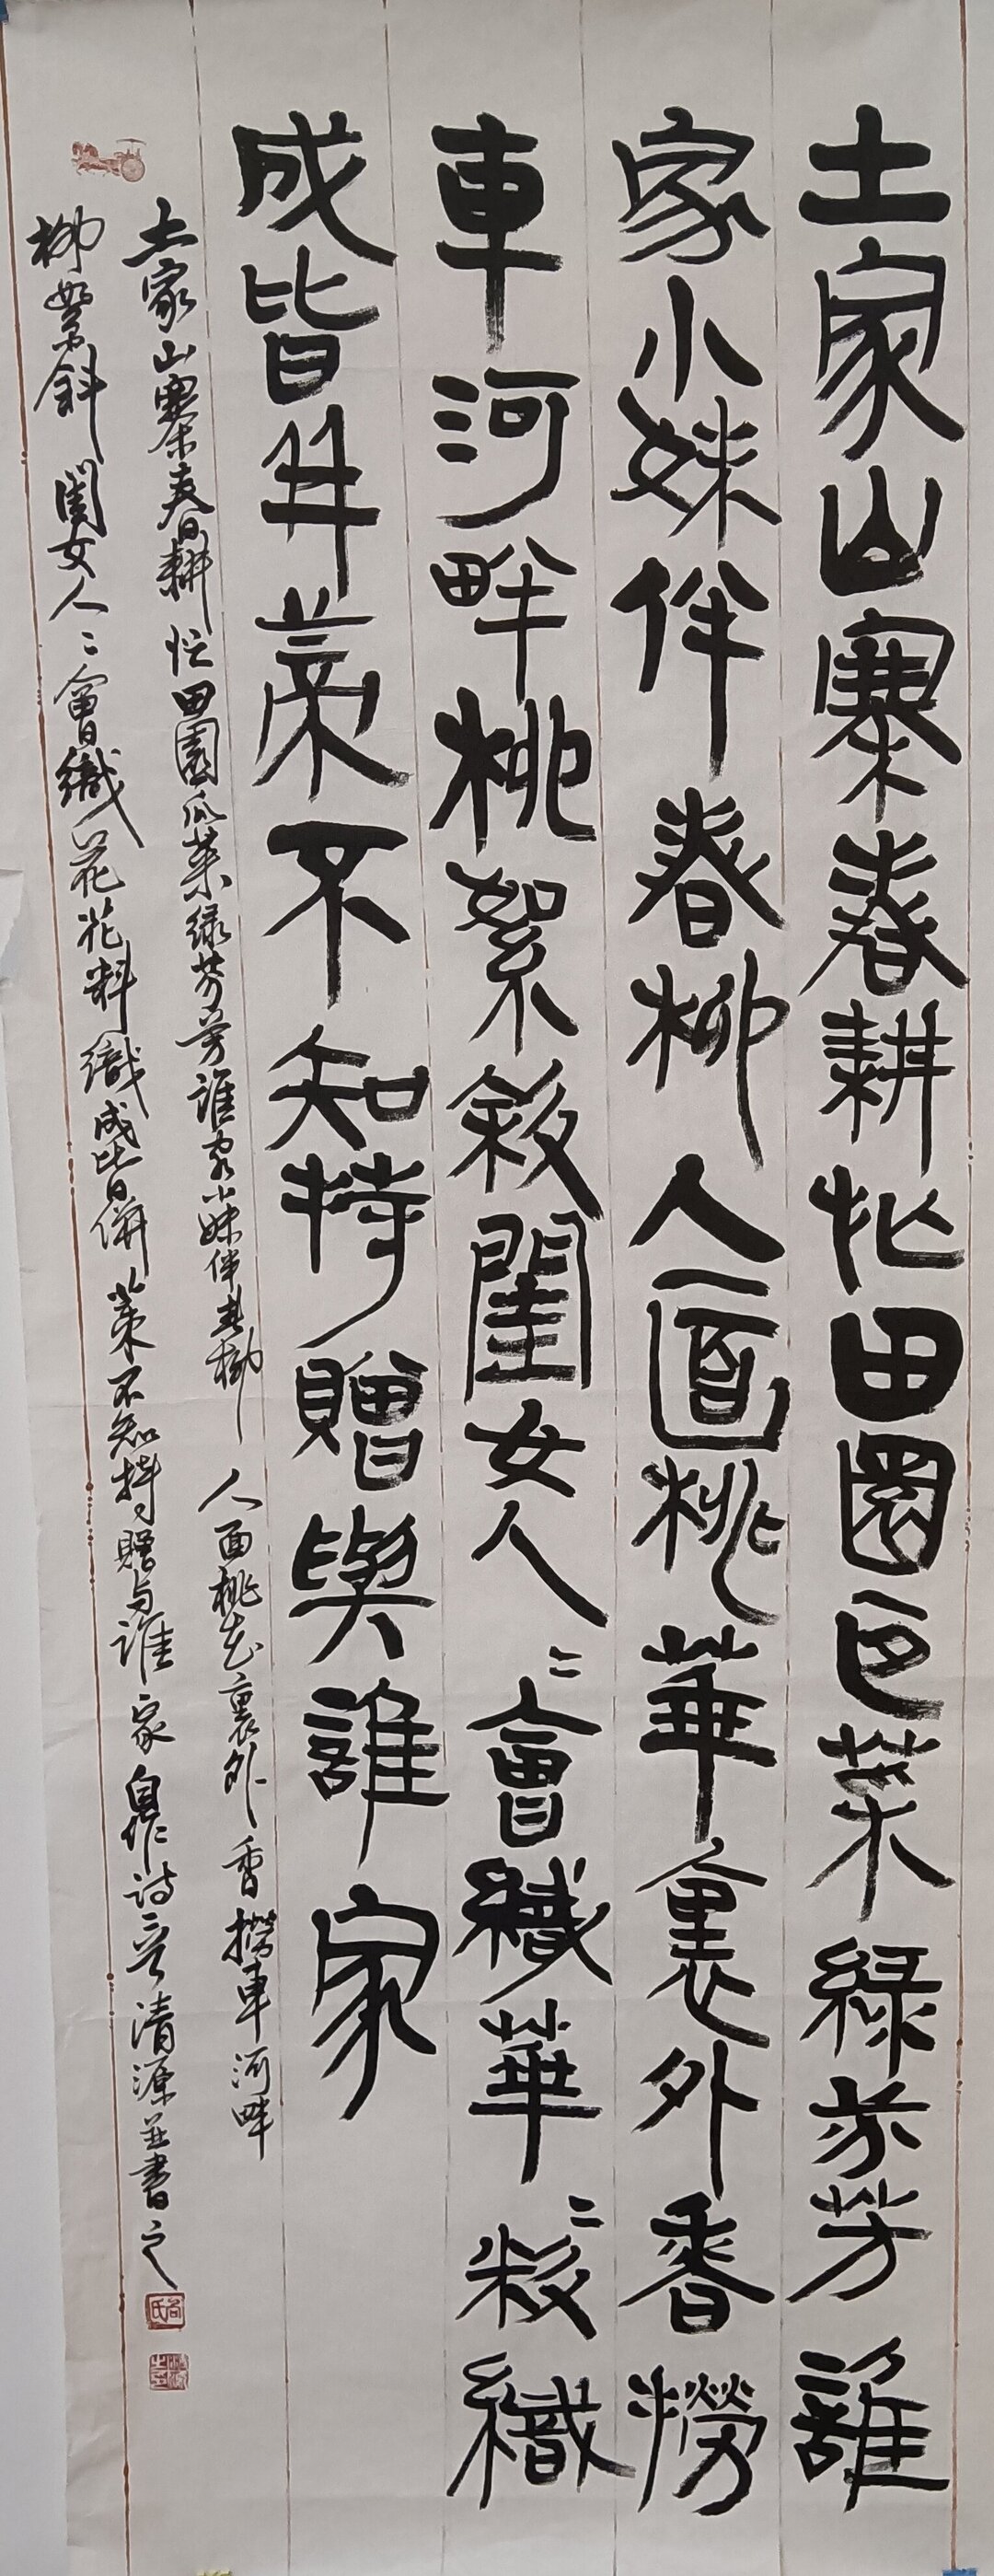 土家山寨春耕忙田園瓜菜綠芬芳誰
家小妹伴春柳人面桃華裏外香撈
車河畔桃絮斜閨女人〻會織華〻料織
成皆并蒂不知持贈與誰家
土家山寨春耕忙田園瓜菜绿芬芳誰家小妹伴春柳人面桃花裏外香撈車河畔
柳絮斜閨女人〻會織花花料織成皆併蒂不知持贈与誰家自作诗二首清源並書之